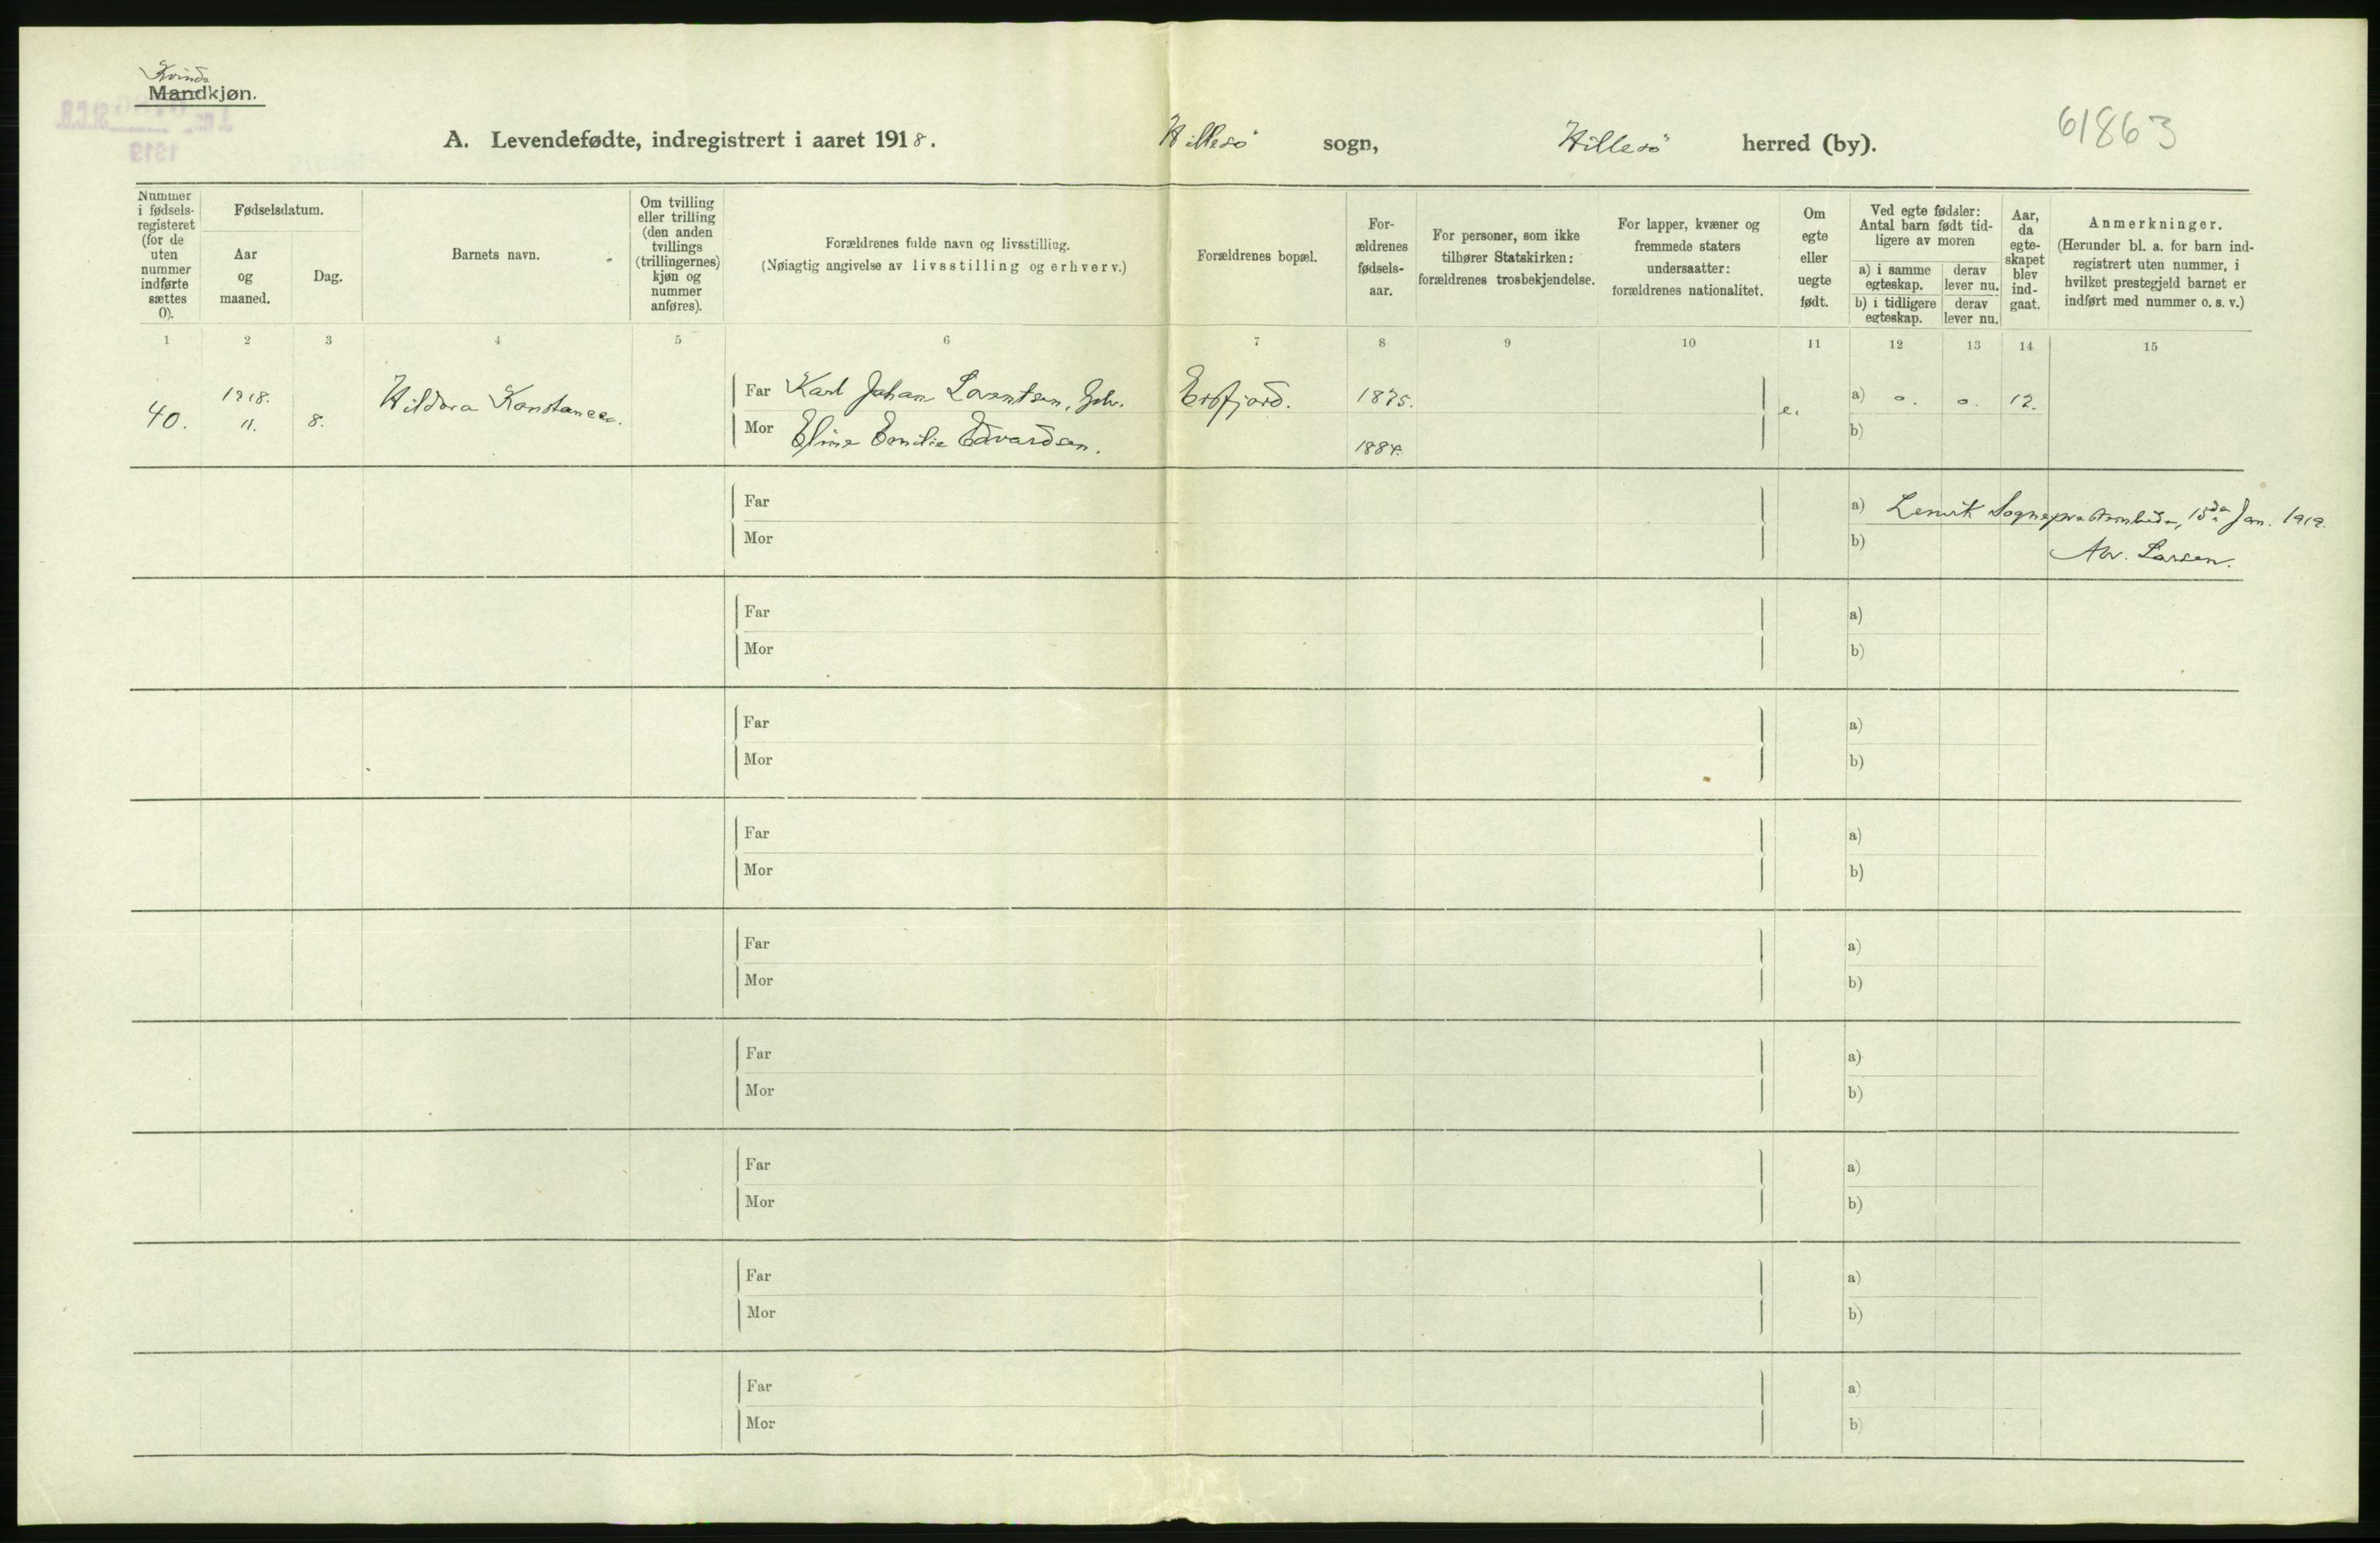 Kvinde
Mandkjøn.
A. Levendefødte, indregistrert i aaret 1918. Hillesö sogn, Hillesö herred (by).
61863
Nummer i fødsels-registeret (for de uten nummer indførte sættes 0).
Fødselsdatum.
Aar og maaned.
Dag.
Barnets navn.
Om tvilling eller trilling (den anden tvillings (trillingernes) kjøn og nummer anføres).
Forældrenes fulde navn og livsstilling.
(Nøiagtig angivelse av livsstilling og erhverv.)
Forældrenes bopæl.
For-ældrenes fødsels-aar.
For personer, som ikke tilhører Statskirken: forældrenes trosbekjendelse.
For lapper, kvæner og fremmede staters undersaatter: forældrenes nationalitet.
Om egte eller uegte født.
Ved egte fødsler: Antal barn født tid-ligere av moren
a) i samme egteskap.
derav lever nu.
b) i tidligere egteskap.
derav lever nu.
Aar, da egte-skapet blev ind-gaat.
Anmerkninger.
(Herunder bl. a. for barn ind-registrert uten nummer, i hvilket prestegjeld barnet er indført med nummer o. s. v.)
1 2 3 4 5 6 7 8 9 10 11 12 13 14 15
40. 1918. 11. 8. Hildora Konstance
Far Karl Johan Lorentsen, Erdfjord. 1875. e. a) 0. 0. 12.
Mor Eline Emilie Edvardsen. 1884. b)
Far a) Lenvik Sogneprestembede, 15de Jan. 1919.
Mor b) Larsen.
Far a)
Mor b)
Far a)
Mor b)
Far a)
Mor b)
Far a)
Mor b)
Far a)
Mor b)
Far a)
Mor b)
Far a)
Mor b)
Far a)
Mor b)